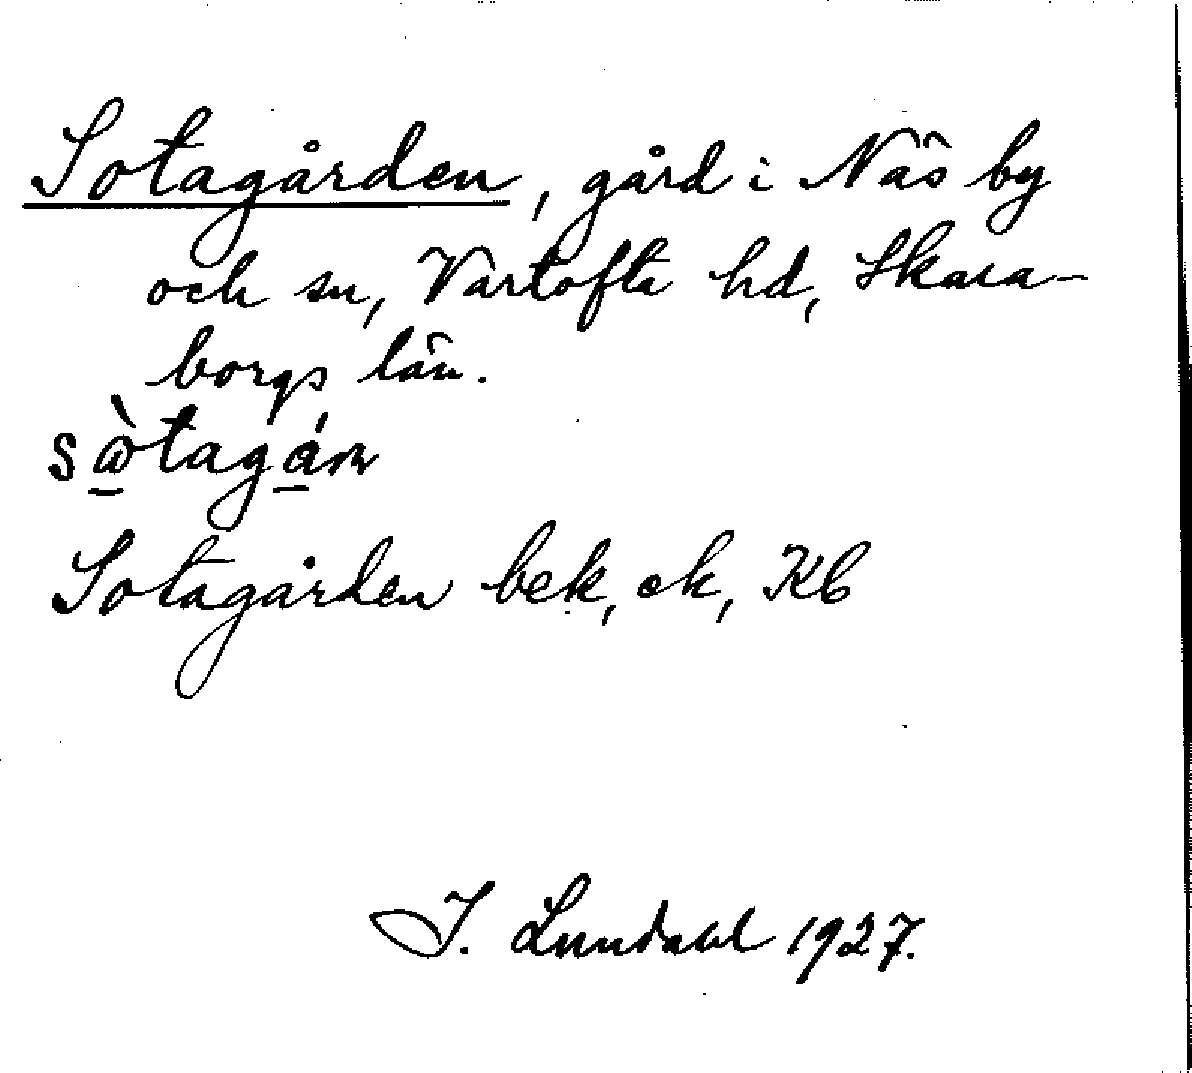 Sotagården, gård i Näs by
och sn, Vartofta hd, Skara-
borgs län.
Sotagården bek, ek, Kb
I. Lundahl 1927.